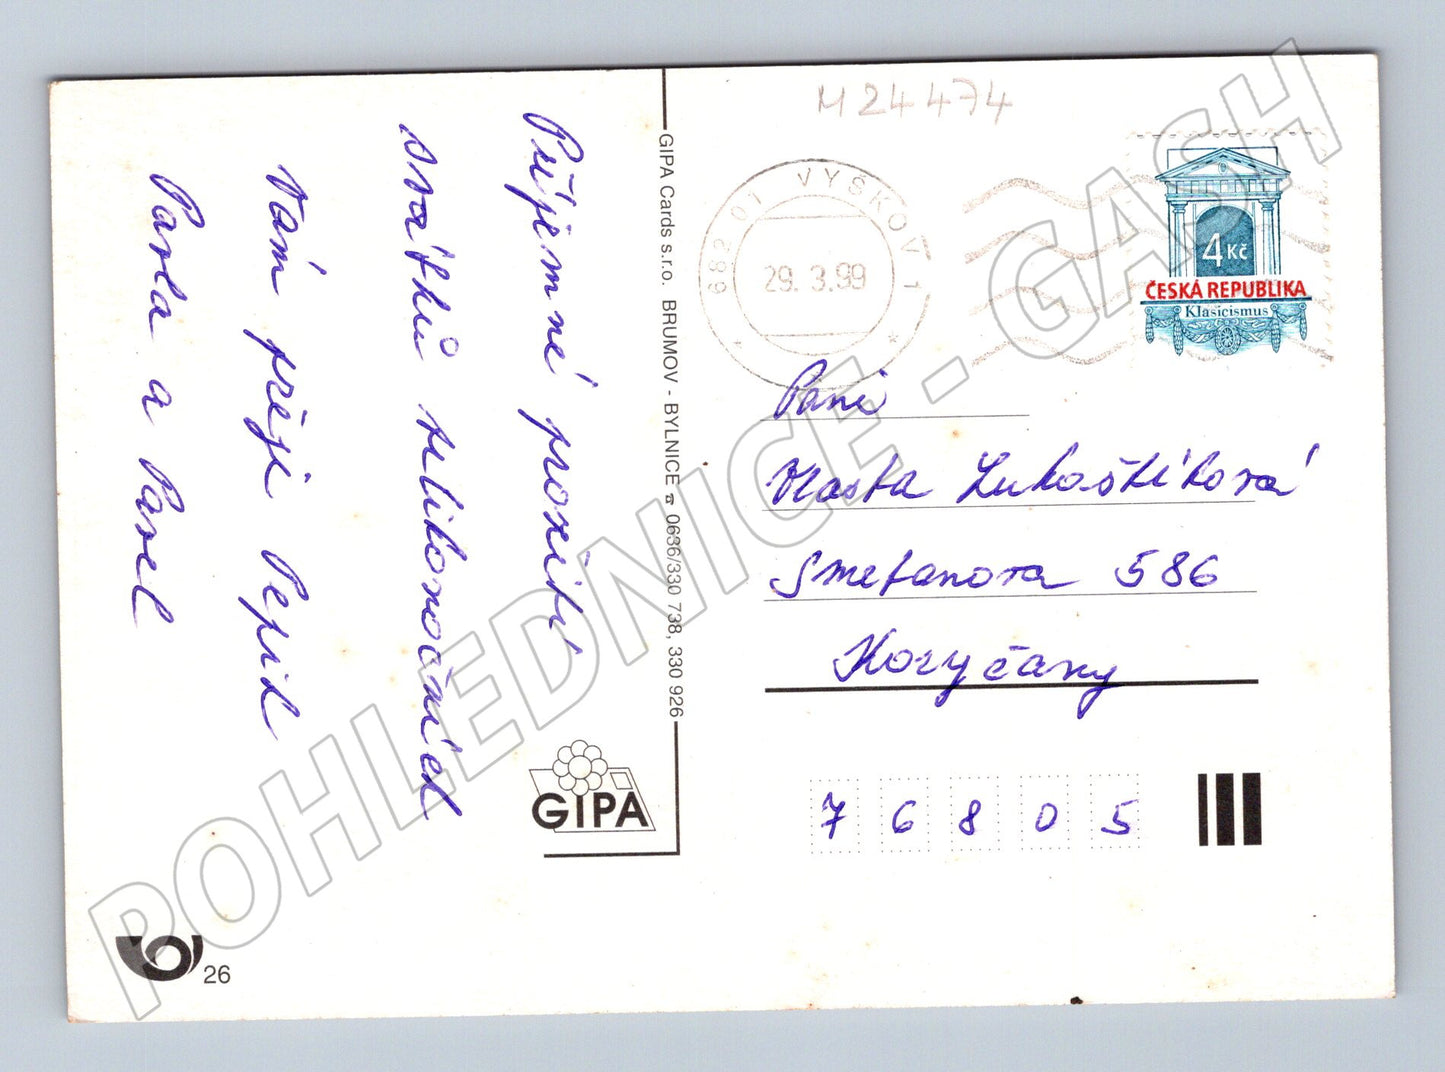 M 24474
682 01 VYŠKOV 1
29. 3.99
4 Kč
ČESKÁ REPUBLIKA
Klasicismus
Příjemné prožití
svátků velikonočních
Vám přeje Pepík
Pavla a Pavel
GIPA Cards s.r.o. BRUMOV - BYLNICE ☎ 0636/330 738, 330 926
GIPA
26
Paní
Vlasta Lukaštíková
Smetanova 586
Koryčany
76805
POHLEDNICE - GASH